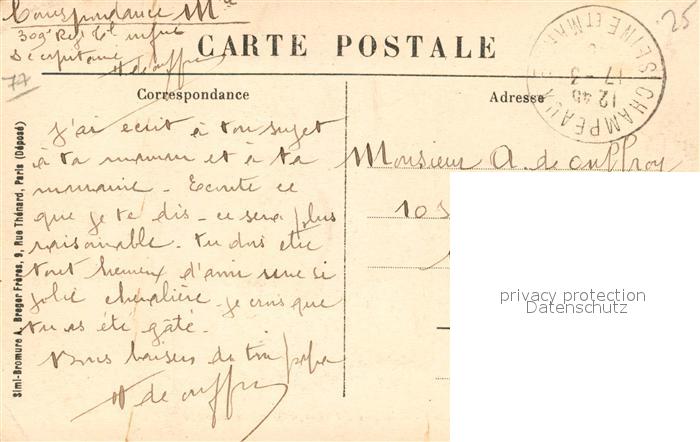 Correspondance Mre
309e Regt tal infie
H de ouffroy
25
77
CARTE POSTALE
SEINE ET MARNE
17-3
12 45
CHAMPEAUX
Correspondance
Adresse
J'ai ecrit à ton sujet
à ta maman et à ta
marraine. Ecoute ce
que je te dis - ce sera plus
raisonnable. Tu dois être
tout heureux d'avoir une si
jolie chevalière. je crois que
tu as été gâté.
Bons baisers de ton papa
H de ouffroy
Monsieur A. de ouffroy
105
Simi-Bromure A. Breger Frères, 9, Rue Thénard, Paris (Déposé)
privacy protection
Datenschutz